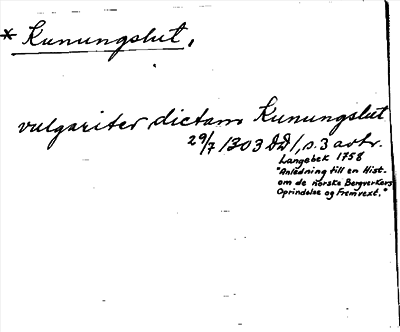 * Kunungslut,
vulgariter dictam Kunungslut
29/7 1303 DD1, s. 3 avtr.
Langebek 1758
"Anledning till en Hist.
om de norske Bergverkers
Oprindelse og Fremvext."